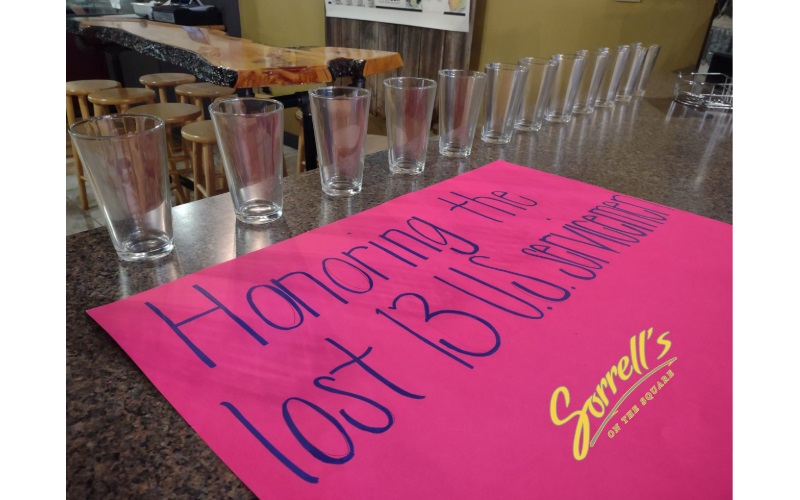 Honoring the
lost 13 U.S. servicemen
Sorrell's
ON THE SQUARE